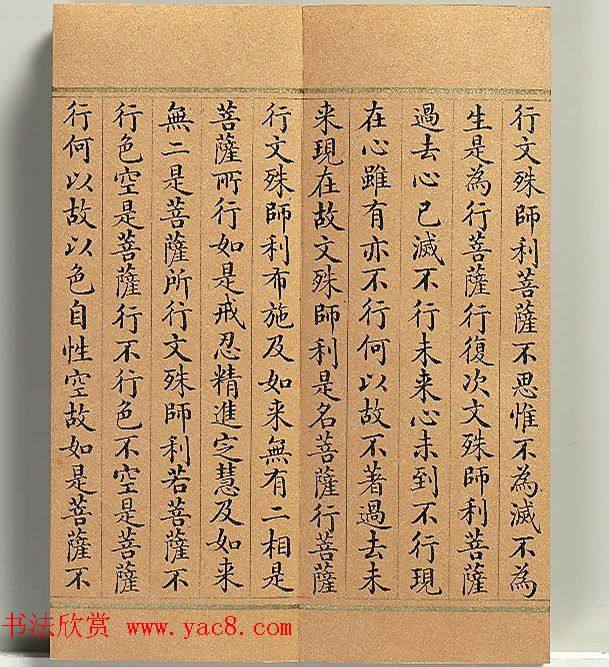 行文殊師利菩薩不思惟不為滅不為
生是為行菩薩行復次文殊師利菩薩
過去心已滅不行未来心未到不行現
在心雖有亦不行何以故不著過去未
来現在故文殊師利是名菩薩行菩薩
行文殊師利布施及如来無有二相是
菩薩所行如是戒忍精進定慧及如来
無二是菩薩所行文殊師利若菩薩不
行色空是菩薩行不行色不空是菩薩
行何以故以色自性空故如是菩薩不
书法欣赏 www.yac8.com